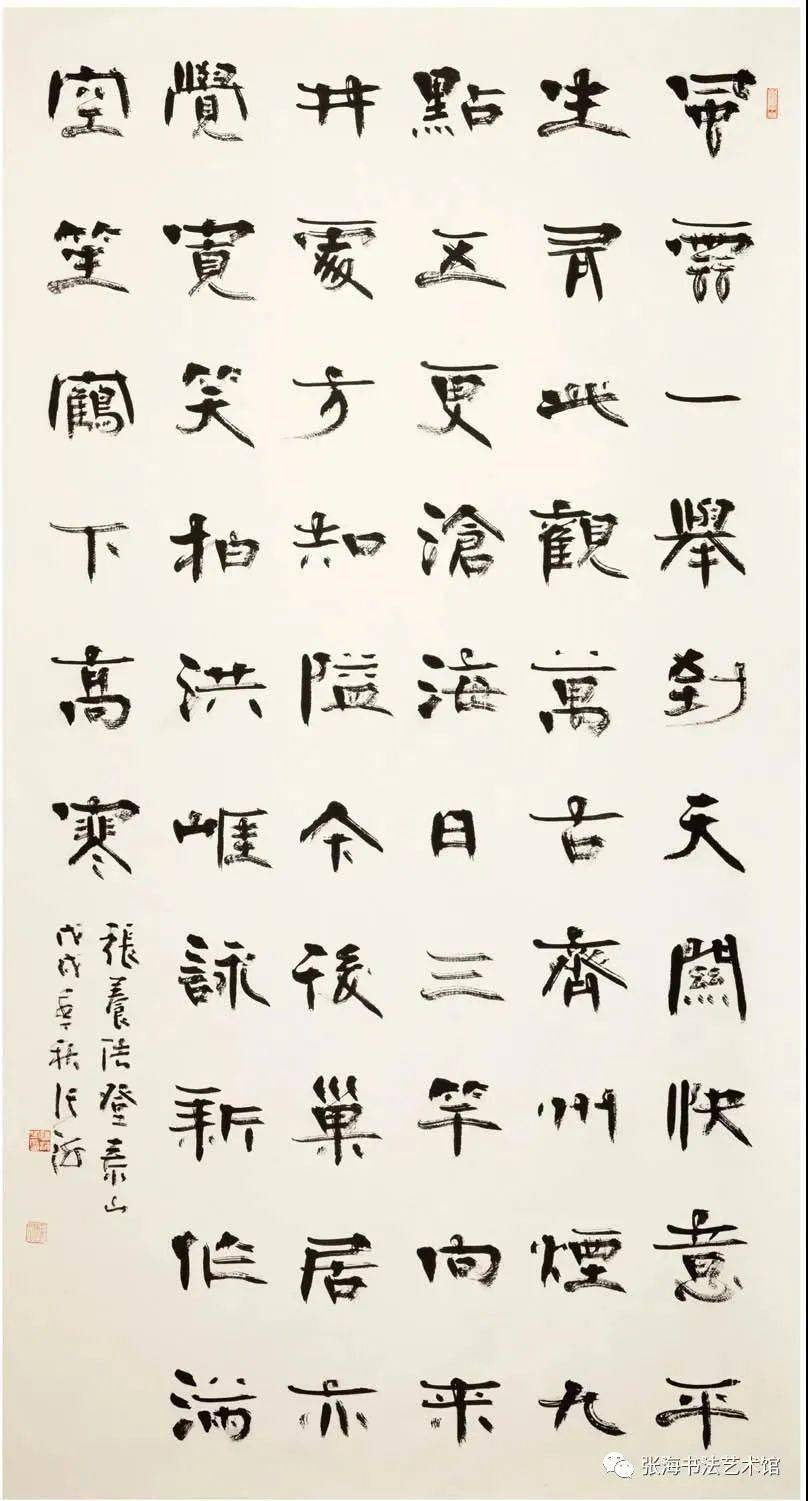 風雲一舉到天關快意平
生有此觀萬古齊州煙九
點五更滄海日三竿向來
井處方知隘今後巢居亦
覺寬笑拍洪崖詠新作滿
空笙鶴下高寒
張養浩登泰山
戊戌秋張海
张海书法艺术馆